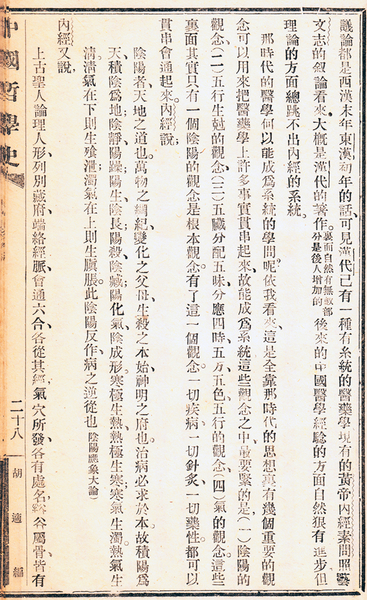 議論都是西漢末年東漢初年的話、可見漢代已有一種有系統的醫藥學現有的黃帝內經素問照藝
文志的敘論看來、大概是漢代的著作。裏面自然有無數部分是後人增加的後來的中國醫學經驗的方面自然狠有進步但
理論的方面總跳不出內經的系統。
那時代的醫學何以能成爲系統的學問呢依我看來、這是全靠那時代的思想眞有幾個重要的觀
念可以用來把醫藥學上許多事實貫串起來、故能成爲系統這些觀念之中、最要緊的是(一)陰陽的
觀念、(二)五行生尅的觀念、(三)五臟分配五味分應四時、五方、五色、五行的觀念、(四)氣的觀念。這些
裏面其實只有一個陰陽的觀念是根本觀念。有了這一個觀念、一切疾病、一切針灸、一切藥性都可以
貫串會通起來。內經說、
陰陽者、天地之道也。萬物之綱紀、變化之父母、生殺之本始、神明之府也。治病必求於本。故積陽爲
天、積陰爲地、陰靜陽躁、陽生陰長、陽殺陰藏、陽化氣、陰成形、寒極生熱、熱極生寒、寒氣生濁、熱氣生
清、清氣在下則生飧泄、濁氣在上則生䐜脹。此陰陽反作病之逆從也(陰陽應象大論)
內經又說、
上古聖人論理人形、列別臟府、端絡經脈、會通六合、各從其經、氣穴所發、各有處名、谿谷屬骨、皆有
中國哲學史
二十八
胡適編